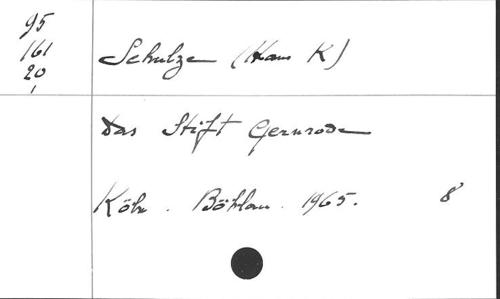 95
161
20
1
Schulze (Hans K)
Das Stift Gernrode
Köln. Böhlau. 1965. 8°